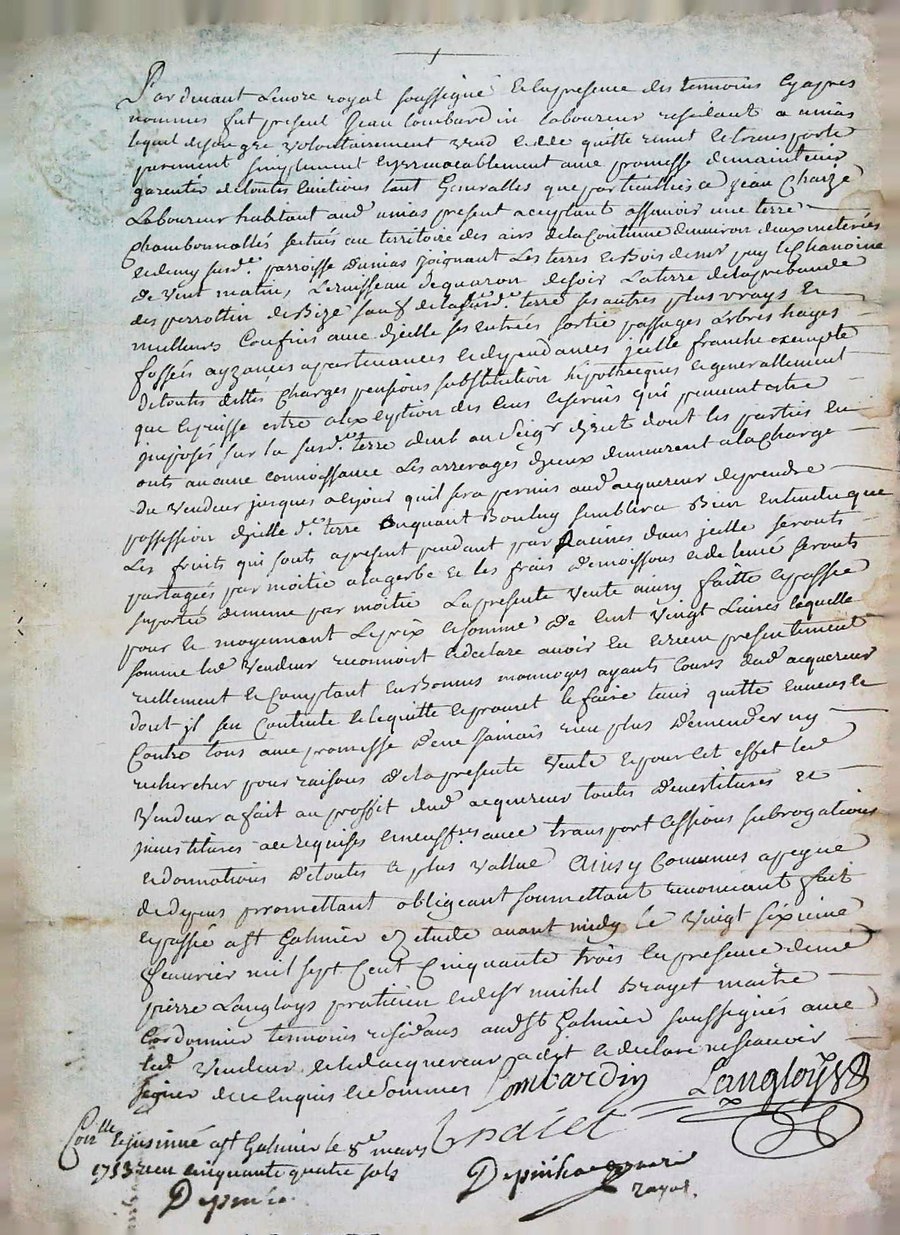 Pardevant Lenore royal soussigné et en presence des temoins cyapres
nommés fut present Jean Lombardin laboureur residant a aunias
lequel de son gre volontairement vend cedde quitte remet et transporte
purement simplement et irrevocablement avec promesse de maintenir
garentir de toutes evictions tant generalles que particulliés a jean Chaize
Laboureur habitant aud. present acceptant assavoir une terre
Chambonnalle situés au territoire des airs de la Contenue denviron deux meterés
et demy surd.e parroisse joignant Les terres et Bois de mr puy le Chanoine
de vent matin, Le ruisseau de soir La terre de la prebande
des perrottin de Bize sauf de la surd.e terre ses autres plus vrays et
meilleurs Confins avec djcelle ses entrées sortie passages arbres hayes
fossés ayzances apartenances et dependances jcelle franche exempte
de toutes dettes Charges pensions substitution hypothecques et generallement
que le puisse estre a lexception des cens et servis qui peuvent estre
jmposés sur la surd.e terre deub au Seigr djcelle dont les parties en
onts aucune connoissance Les arrerages djceux demeurent a la Charge
du Vendeur jusques a ce jour quil sera permis aud acquereur de prendre
possession djcelle d.e terre quant Bon luy semblera Bien entendu que
Les fruits qui sonts apresent pendant par Racines dans jcelle seronts
partagés par moitié a la gerbe et les frais de moissons et de levé seronts
suporté de meme par moitié La presente Vente ainsy faitte et passée
pour et moyennant Le prix et somme de Cent Vingt Livres laquelle
somme led Vendeur reconnoit et declare avoir eu et receu presentement
reellement et Comptant en Bonnes monnoyes ayants Cours dud acquereur
dont jl sen Contente et le quitte et promet le faire tenir quitte envers et
Contre tous avec promesse den ne jamais rien plus Demender ny
rechercher pour raisons de la presente Vente et pour cet effet led
Vendeur a fait au proffit dud acquereur toutes Devettitures et
jnvestitures acc requises avec transport Cessions subrogations
et donnations de toutes la plus Vallue Ainsy Convenus a peyne
de depens promettant obligeant soumettant renonciant fait
et passé a St Galmier ez etude avant midy le Vingt sixieme
feauvrier mil sept Cent Cinquante trois en presence de me
pierre Langloys praticien et de sr michel Brayet maitre
Cordonnier temoins residans aud St Galmier soussignés avec
led Vendeur et led acquereur a dit et declare ne scavoir
signer de ce enquis et sommes Lombardin Langloys
Con.lle et jnsinué a St Galmier le 8e mars
1753 receu cinquante quatre sols
royal.